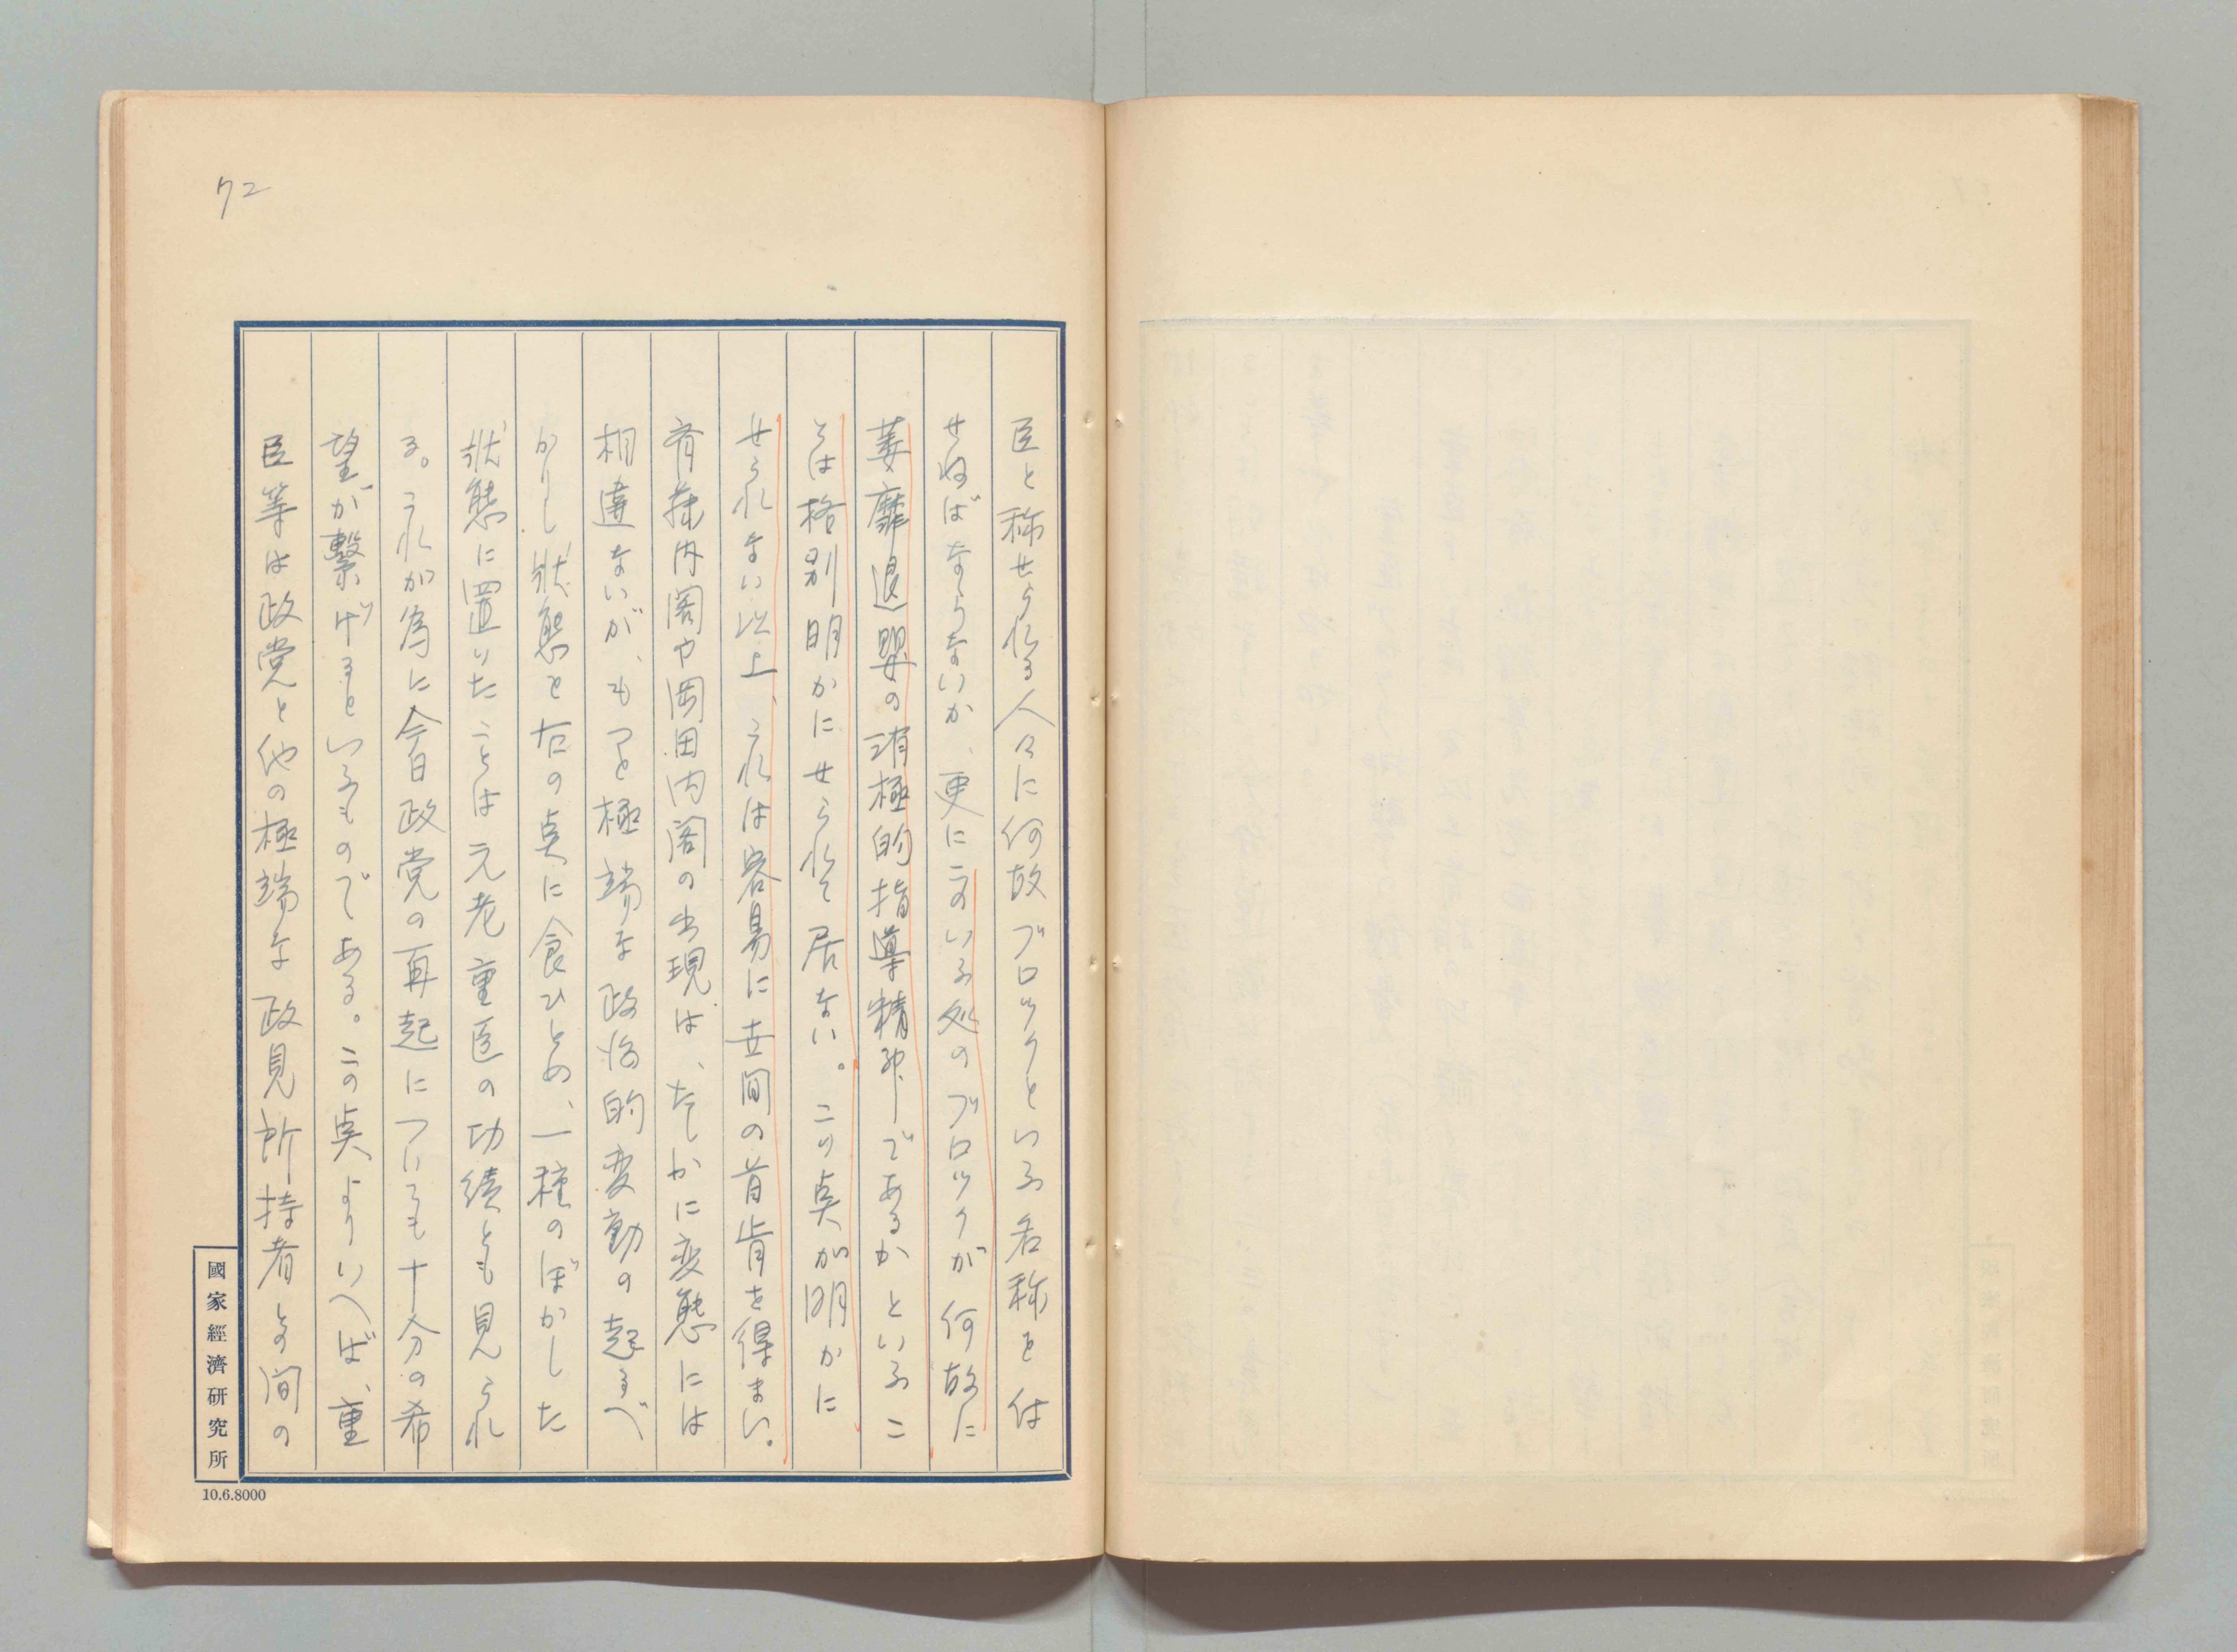 72
臣と称せられる人々に何故ブロックといふ名称を付
せねばならないか、更にこのいふ処のブロックが何故に
萎靡退嬰の消極的指導精神であるかといふこ
とは格別明かにせられて居ない。この点が明かに
せられない以上、これは容易に世間の首肯を得まい。
斉藤内閣や岡田内閣の出現は、たしかに変態には
相違ないが、もつと極端な政治的変動の起るべ
かりし状態を右の点に食ひとめ、一種のぼかした
状態に置いたことは元老重臣の功績とも見られ
る。これが為に今日政党の再起についても十分の希
望が繋げるといふものである。この点よりいへば、重
臣等は政党と他の極端な政見所持者との間の
國家經濟研究所
10.6.8000